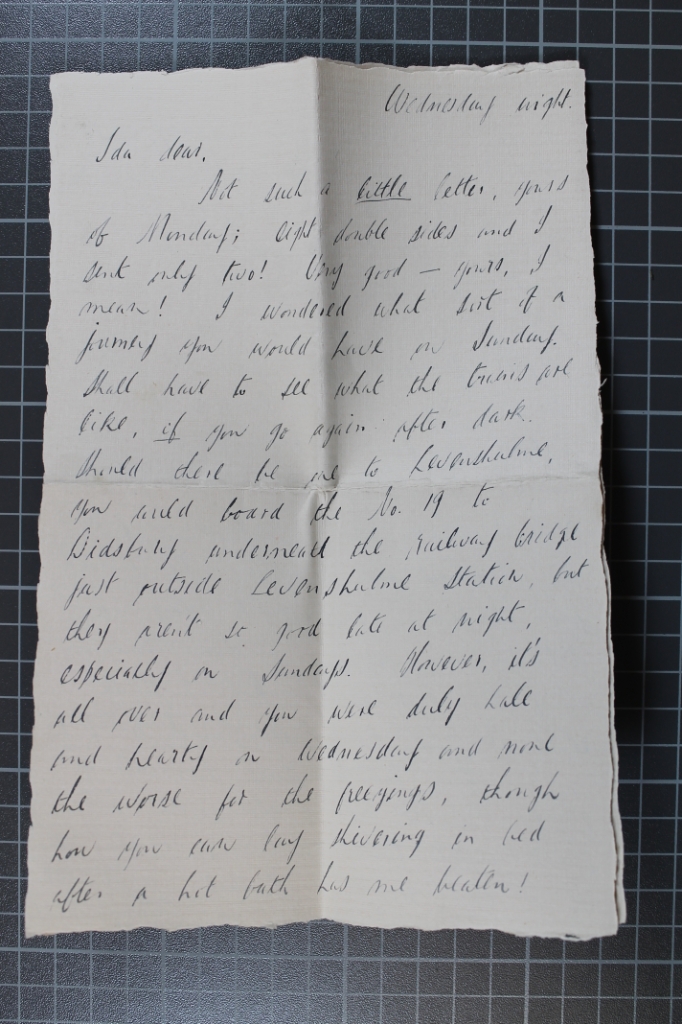 Wednesday night.
Ida dear,
Not such a little letter, yours
of Monday; eight double sides and I
sent only two! Very good — yours, I
mean! I wondered what sort of a
journey you would have on Sunday.
Shall have to see what the trains are
like, if you go again after dark.
Should there be one to Levenshulme,
you could board the No. 19 to
Didsbury underneath the railway bridge
just outside Levenshulme Station, but
they aren't so good late at night,
especially on Sundays. However, it's
all over and you were duly hale
and hearty on Wednesday and none
the worse for the freezings, though
how you can lay shivering in bed
after a hot bath has me beaten!